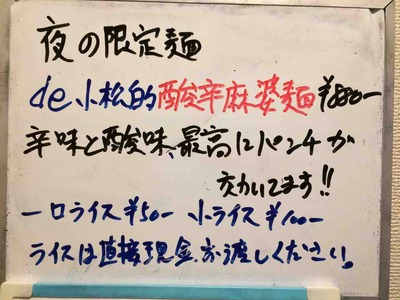 夜の限定麺
de小松的酸辛麻婆麺¥880-
辛味と酸味、最高にパンチが
効いてます!!
一口ライス¥50- 小ライス¥100-
ライスは直接現金お渡しください。